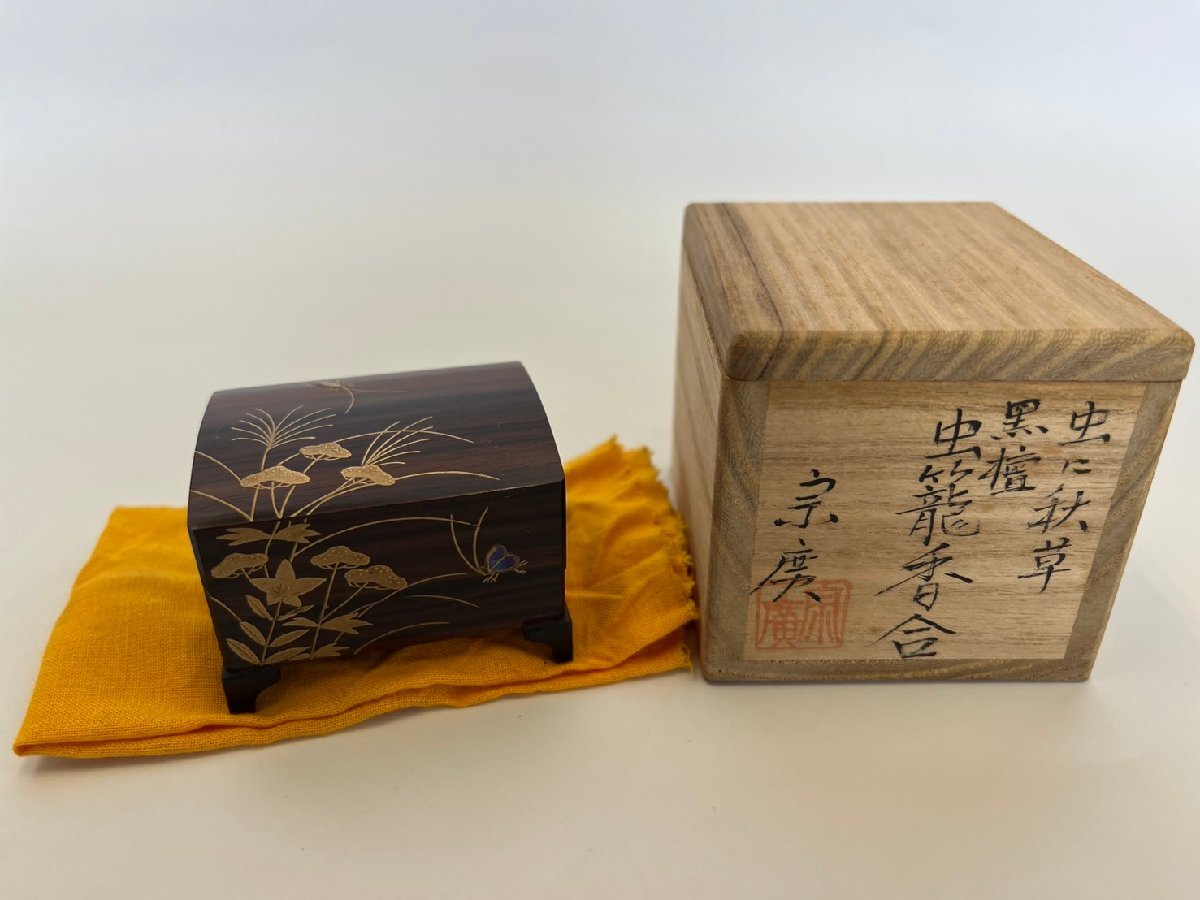 虫に秋草
黒檀
虫籠香合
宗廣
宗廣